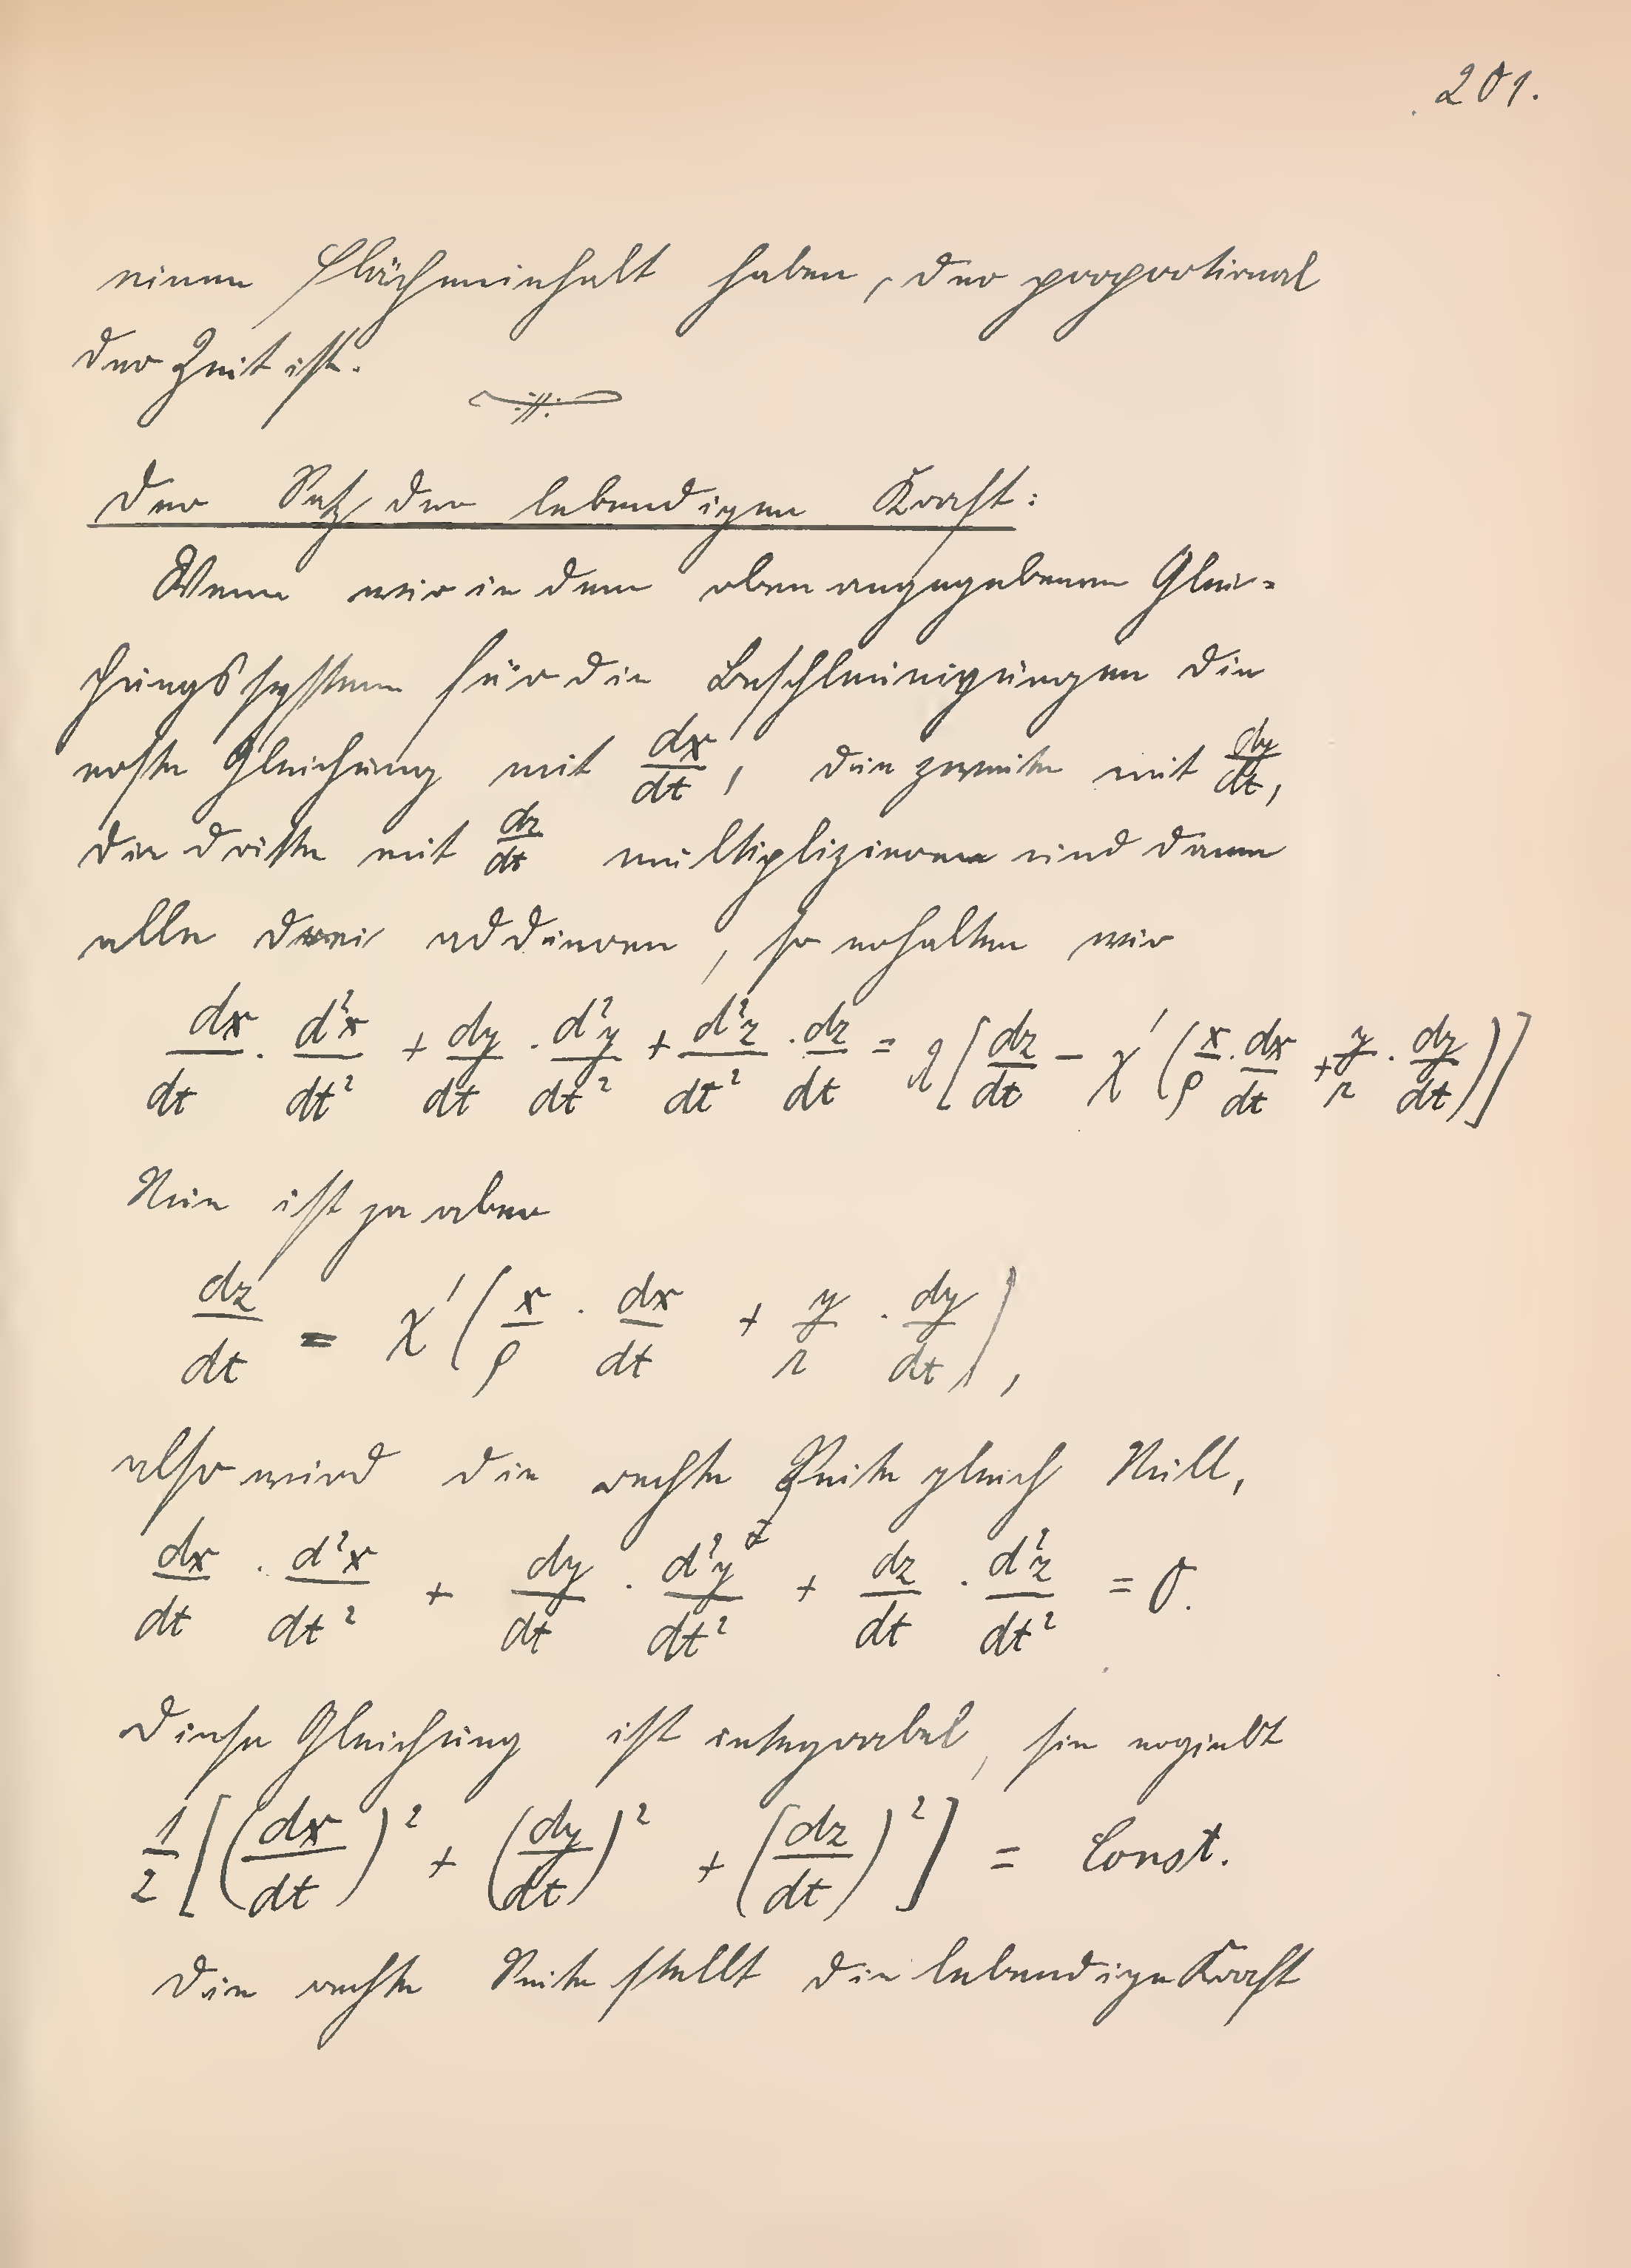 201.
einen Flächeninhalt haben, der proportional
der Zeit ist.
Der Satz der lebendigen Kraft:
Wenn wir in dem oben angegebenen Glei-
chungssystem für die Beschleunigungen die
erste Gleichung mit dx/dt, die zweite mit dy/dt,
die dritte mit dz/dt multiplizieren und dann
alle drei addieren, so erhalten wir
dx/dt · d²x/dt² + dy/dt · d²y/dt² + d²z/dt² · dz/dt = λ[dz/dt − χ′(x/ρ · dx/dt + y/r · dy/dt)]
Nun ist ja aber
dz/dt = χ′(x/ρ · dx/dt + y/r · dy/dt),
also wird die rechte Seite gleich Null,
dx/dt · d²x/dt² + dy/dt · d²y/dt² + dz/dt · d²z/dt² = 0.
Diese Gleichung ist integrabel, sie ergiebt
1/2[(dx/dt)² + (dy/dt)² + (dz/dt)²] = Const.
Die rechte Seite stellt die lebendige Kraft